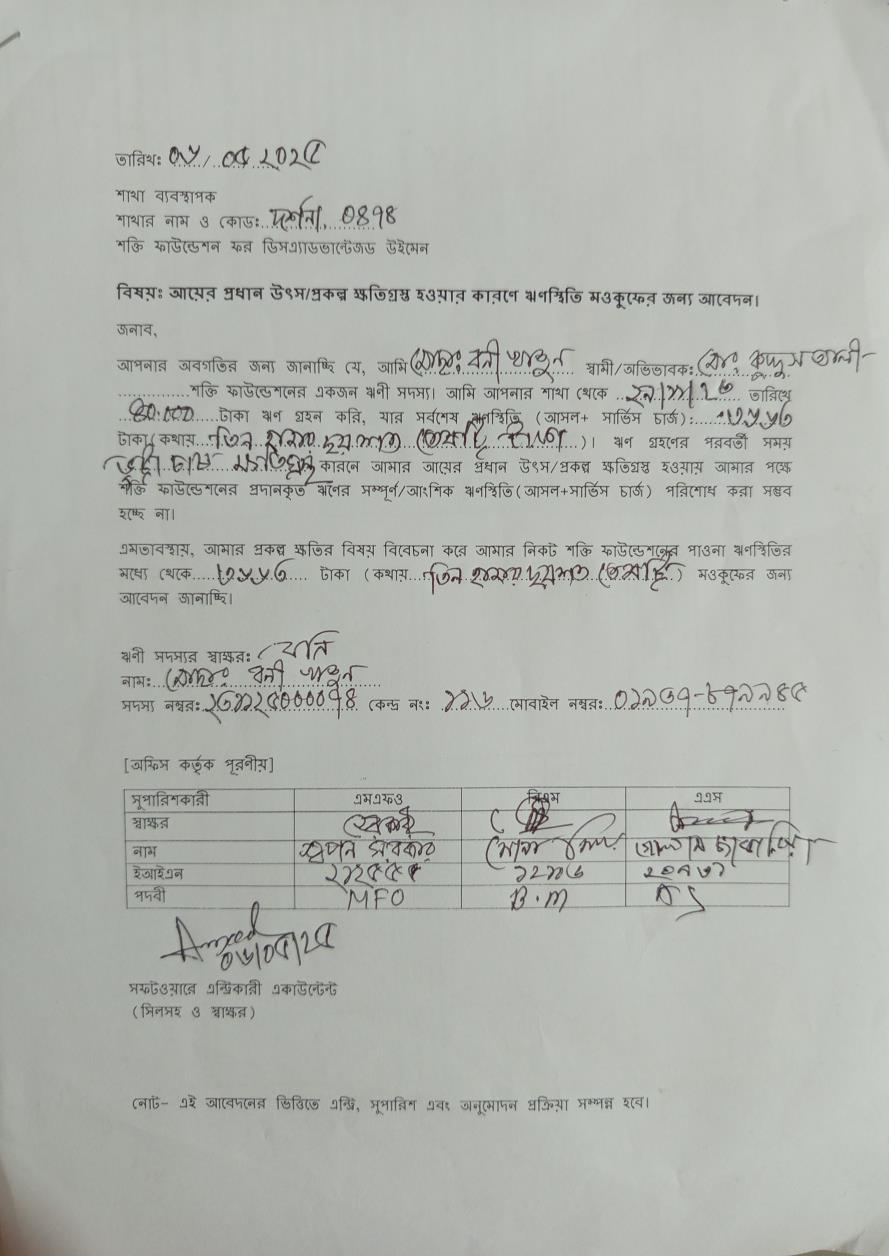 তারিখঃ ০৮/ ০৫ ২০২৫
শাখা ব্যবস্থাপক
শাখার নাম ও কোডঃ দর্শনা, 0898
শক্তি ফাউন্ডেশন ফর ডিসএ্যাডভান্টেজড উইমেন
বিষয়ঃ আয়ের প্রধান উৎস/প্রকল্প ক্ষতিগ্রস্ত হওয়ার কারণে ঋণস্থিতি মওকুফের জন্য আবেদন।
জনাব,
আপনার অবগতির জন্য জানাচ্ছি যে, আমি মোছাঃ বনী খাতুন স্বামী/অভিভাবকঃ মোঃ কুদ্দুস আলী
শক্তি ফাউন্ডেশনের একজন ঋনী সদস্য। আমি আপনার শাখা থেকে তারিখে
80.000 টাকা ঋণ গ্রহন করি, যার সর্বশেষ ঋণস্থিতি (আসল+ সার্ভিস চার্জ):
টাকা( কথায় তিন হাজার ছয়শত টাকা )। ঋণ গ্রহণের পরবর্তী সময়
কারনে আমার আয়ের প্রধান উৎস/প্রকল্প ক্ষতিগ্রস্ত হওয়ায় আমার পক্ষে
শক্তি ফাউন্ডেশনের প্রদানকৃত ঋনের সম্পূর্ণ/আংশিক ঋণস্থিতি(আসল+সার্ভিস চার্জ) পরিশোধ করা সম্ভব
হচ্ছে না।
এমতাবস্থায়, আমার প্রকল্প ক্ষতির বিষয় বিবেচনা করে আমার নিকট শক্তি ফাউন্ডেশনের পাওনা ঋণস্থিতির
মধ্যে থেকে টাকা (কথায় তিন হাজার ছয়শত ) মওকুফের জন্য
আবেদন জানাচ্ছি।
ঋনী সদস্যর স্বাক্ষরঃ বনি
নামঃ মোছাঃ বনী খাতুন
সদস্য নম্বরঃ কেন্দ্র নংঃ মোবাইল নম্বরঃ
[অফিস কর্তৃক পূরনীয়]
সুপারিশকারী এমএফও বিএম এএস
স্বাক্ষর
নাম স্বপন সরকার
ইআইএন
পদবী MFO B.M AS
সফটওয়ারে এন্ট্রিকারী একাউন্টেন্ট
(সিলসহ ও স্বাক্ষর)
নোট- এই আবেদনের ভিত্তিতে এন্ট্রি, সুপারিশ এবং অনুমোদন প্রক্রিয়া সম্পন্ন হবে।